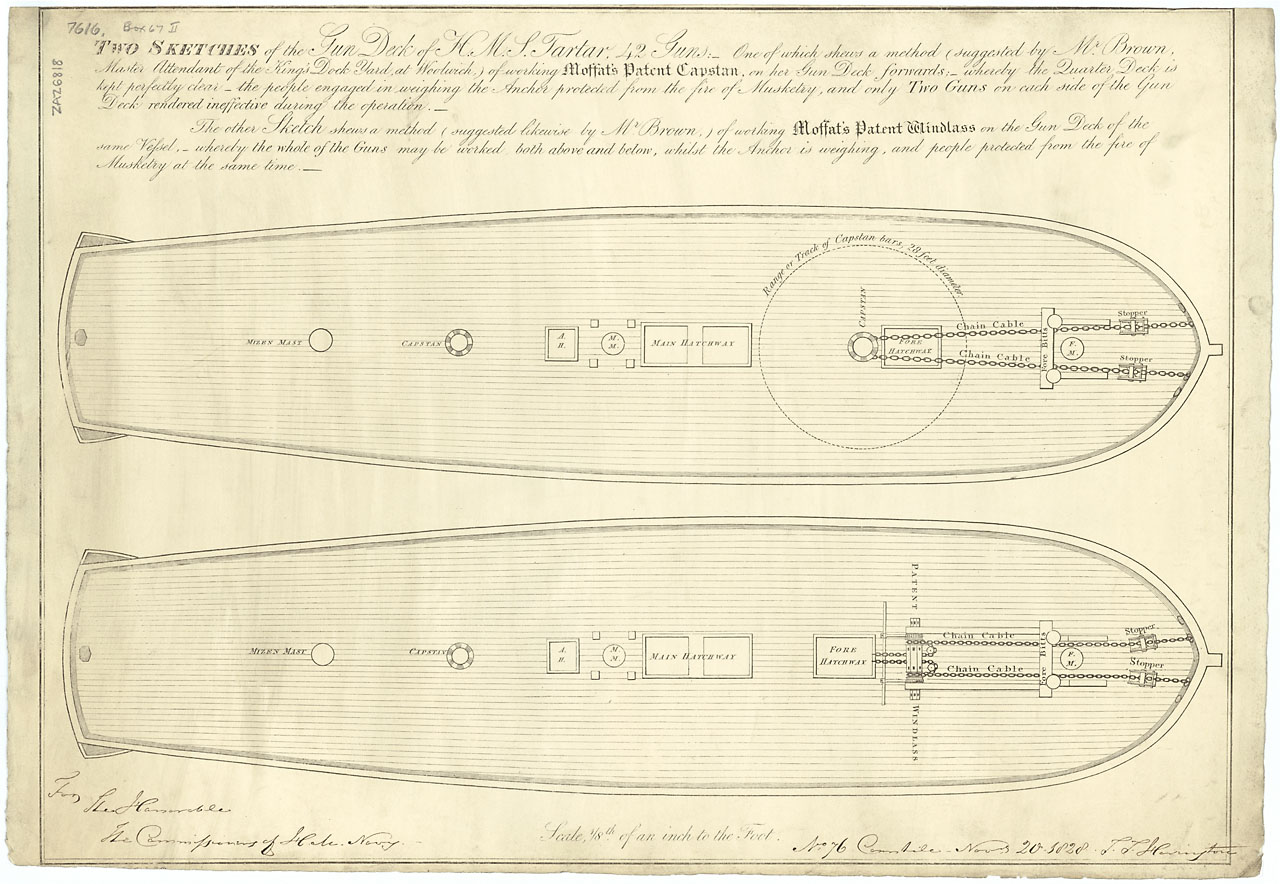 7616, Box 67 II
ZAZ6818
TWO SKETCHES of the Gun Deck of H.M.S. Tartar, 42 Guns:_ One of which shews a method (suggested by Mr. Brown,
Master Attendant of the Kings Dock Yard, at Woolwich,) of working Moffat's Patent Capstan, on her Gun Deck forwards:_ whereby the Quarter Deck is
kept perfectly clear _ the people engaged in weighing the Anchor protected from the fire of Musketry, and only Two Guns on each side of the Gun
Deck rendered ineffective during the operation. _
The other Sketch shews a method (suggested likewise by Mr. Brown,) of working Moffat's Patent Windlass on the Gun Deck of the
same Vessel, _ whereby the whole of the Guns may be worked, both above and below, whilst the Anchor is weighing, and people protected from the fire of
Musketry at the same time. _
Range or Track of Capstan bars, 28 feet diameter
MIZEN MAST
CAPSTAN
A. H.
M. M.
MAIN HATCHWAY
CAPSTAN
FORE HATCHWAY
Chain Cable
Chain Cable
Fore Bitts
F. M.
Stopper
Stopper
MIZEN MAST
CAPSTAN
A. H.
M. M.
MAIN HATCHWAY
FORE HATCHWAY
PATENT
WINDLASS
Chain Cable
Chain Cable
Fore Bitts
F. M.
Stopper
Stopper
For
The Honorable
The Commissioners of His Navy
Scale, 1/8th of an inch to the Foot.
No. 76 Novr. 20 1828